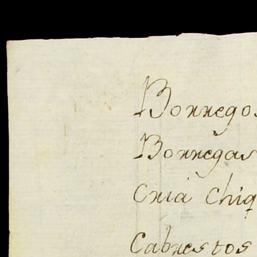 Borregos
Borregas
Cria Chiq
Cabrestos